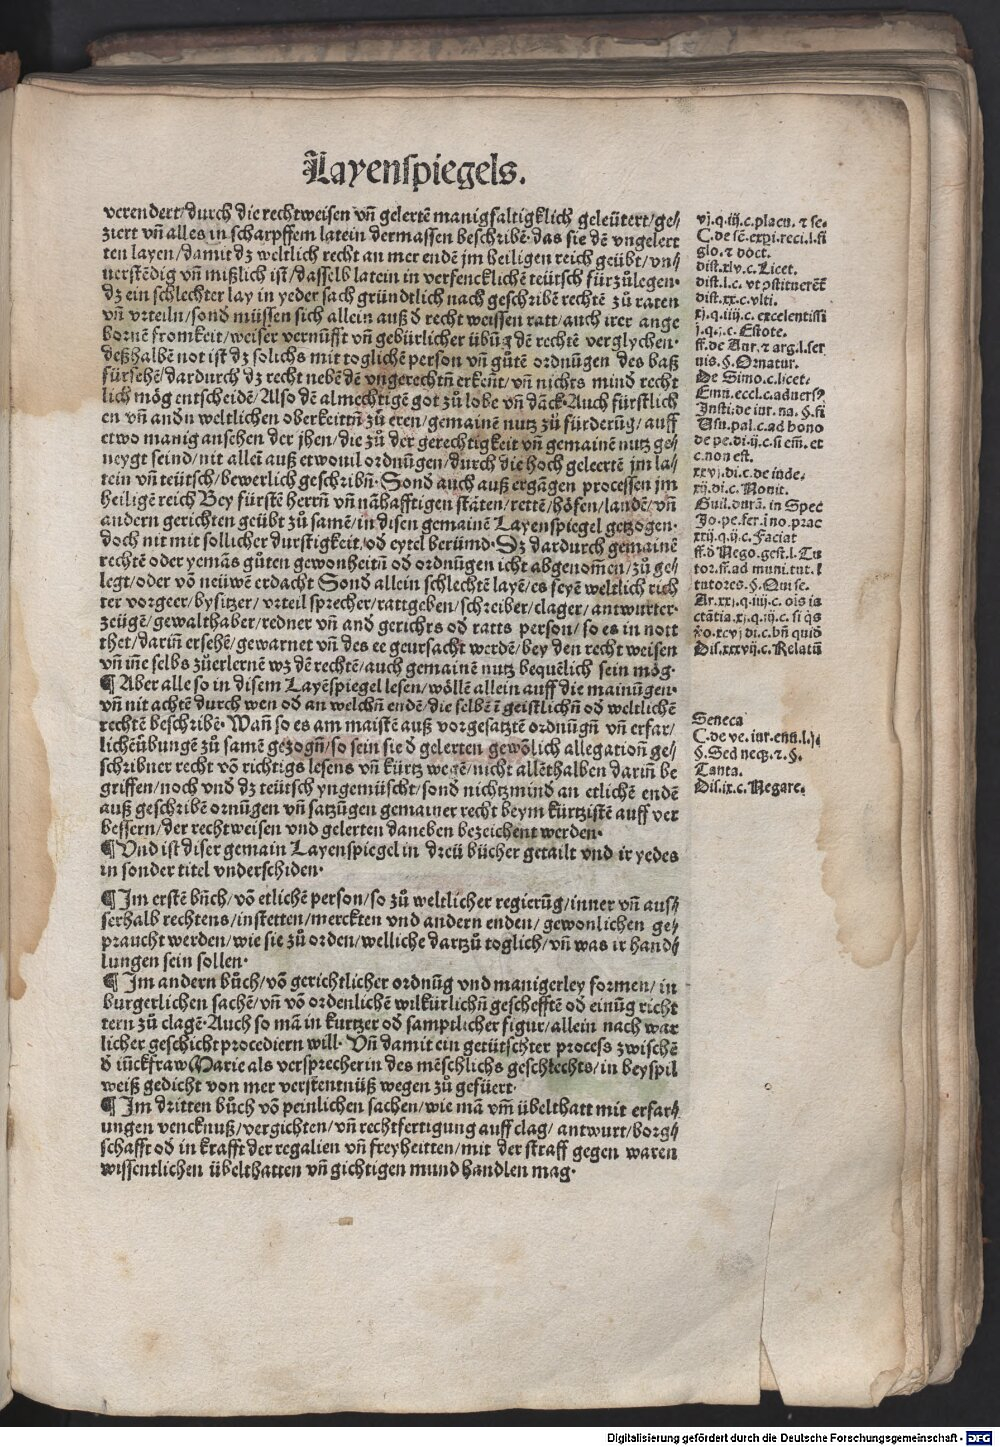 Layenspiegels.
verendert/durch die rechtweisen vñ gelertẽ manigfaltigklich geleütert/ge⸗
ziert vñ alles in scharpffem latein dermassen beschribẽ. das sie dẽ vngelert
ten layen/damit dz weltlich recht an mer endẽ jm heiligen reich geübt/vn⸗
uerstẽdig vñ mißlich ist/dasselb latein in verfencklichẽ teütsch fürzůlegen.
dz ein schlechter lay in yeder sach gründtlich nach geschribẽ rechtẽ zů raten
vñ vrteiln/sonđ müssen sich allein auß đ recht weissen ratt/auch irer ange
bornẽ fromkeit/weiser vernüfft vñ gebürlicher übũg dẽ rechtẽ verglychen.
deßhalbẽ not ist dz solichs mit toglichẽ person vñ gůtẽ ordnũgen des baß
fürsehẽ/dardurch dz recht nebẽ dẽ vngerechtñ erkent/vñ nichts minđ recht
lich mög entscheidẽ/Also dẽ almechtigẽ got zů lobe vñ dãck. Auch fürstlich
en vñ andn weltlichen oberkeittñ zů eren/gemainẽ nutz zů fürderũg/auff
etwo manig ansehen der jhen/die zů der gerechtigkeit vñ gemainẽ nutz ge⸗
neygt seind/nit alleĩ auß etwouil ordnũgen/durch die hoch geleertẽ jm la⸗
tein vñ teütsch/bewerlich geschribñ. Sonđ auch auß ergãgen processen jm
heiligẽ reich Bey fürstẽ herrñ vñ nãhafftigen stäten/rettẽ/höfen/landẽ/vñ
andern gerichten geübt zů samẽ/in disen gemainẽ Layenspiegel getzogen.
doch nit mit sollicher durstigkeit/ođ eytel berümđ. Dz dardurch gemainẽ
rechtẽ oder yemãs gůten gewonheitñ ođ ordnũgen icht abgenom̃en/zů ge⸗
legt/oder võ neüwẽ erdacht Sonđ allein schlechtẽ layẽ/es seyẽ weltlich rich
ter vorgeer/bysitzer/vrteil sprecher/rattgeben/schreiber/clager/antwurter.
zeügẽ/gewalthaber/redner vñ and gerichrs ođ ratts person/so es in nott
thet/dariñ ersehẽ/gewarnet vñ des ee geursacht werdẽ/bey den recht weisen
vñ iñe selbs zůerlernẽ wz dẽ rechtẽ/auch gemainẽ nutz bequẽlich sein mög.
¶ Aber alle so in disem Layẽspiegel lesen/wöllẽ allein auff die mainũgen.
vñ nit achtẽ durch wen ođ an welchñ endẽ/die selbẽ ĩ geistlichñ ođ weltlichẽ
rechtẽ beschribẽ. Wañ so es am maistẽ auß vorgesatztẽ ordnũgñ vñ erfar/
lichẽübungẽ zů samẽ gezogñ/so sein sie đ gelerten gewõlich allegationñ ge⸗
schribner recht võ richtigs lesens vñ kürtz wegẽ/nicht allẽthalben dariñ be
griffen/noch vnđ dz teütsch yngemüscht/sonđ nichtzminđ an etlichẽ endẽ
auß geschribẽ ornũgen vñ satzũgen gemainer recht beym kürtzistẽ auff ver
bessern/der rechtweisen vnd gelerten daneben bezeichent werden.
¶ Vnd ist diser gemain Layenspiegel in dreü bücher getailt vnd ir yedes
in sonder titel vnderschiden.
¶ Im erstẽ bůch/võ etlichẽ person/so zů weltlicher regierũg/inner vñ aus⸗
serhalb rechtens/in stetten/merckten vnd andern enden/gewonlichen ge⸗
praucht werden/wie sie zů orden/welliche dartzů toglich/vñ was ir hand⸗
lungen sein sollen.
¶ Im andern bůch/võ gerichtlicher ordnũg vnd manigerley formen/in
burgerlichen sachẽ/vñ võ ordenlichẽ wilkürlichñ geschefftẽ ođ einũg richt
tern zů clagẽ. Auch so mã in kurtzer ođ samptlicher figur/allein nach war
licher geschicht procediern will. Vñ damit ein getütschter process zwischẽ
đ iũckfraw Marie als versprecherin des mẽschlichs geschlechts/in beyspil
weiß gedicht von mer verstentnüß wegen zů gefüert.
¶ Im dritten bůch võ peinlichen sachen/wie mã vm̃ übelthatt mit erfar⸗
ungen vencknuß/vergichten/vñ rechtfertigung auff clag/antwurt/borg⸗
schafft ođ in krafft der regalien vñ freyheitten/mit der straff gegen waren
wissentlichen übelthatten vñ gichtigen mund handlen mag.
vj.q.iij.c.placu. ⁊ se.
C.de sẽ.expi.reci.l.fi
glo. ⁊ doct.
dist.xlv.c.Licet.
dist.xx.c.vlti.
xj.q.iiij.c.excelentissi
j.q.j.c.Estote.
ff.de Aur. ⁊ arg.l.ser
uis.§.Ornatur.
De Simo.c.licet.
Insti.de iur.na.§.fi
Usu.pal.c.ad bono
de pe.di.ij.c.si em̃.et
c.non est.
xxvj.di.c.de inde.
xij.di.c.Nouit.
Guil.durã. in Spec
Jo.pe.fer.ĩ no.prac
xxij.q.ij.c.Faciat
ff.đ Nego.gest.l.Tu
tor.ff.ad muni.tut.l
tutores.§.Qui se.
Ar.xxj.q.iiij.c.ois ia
ctãtia.xj.q.iij.c.si q̃s
ꝟo.xcvj di.c.bñ quid
Dis.xxxvij.c.Relatũ
Seneca
C.de ve.iur.enu.l.j.
§.Sed neqꝫ. ⁊ §.
Tanta.
Dis.ix.c.Negare.
Digitalisierung gefördert durch die Deutsche Forschungsgemeinschaft - DFG